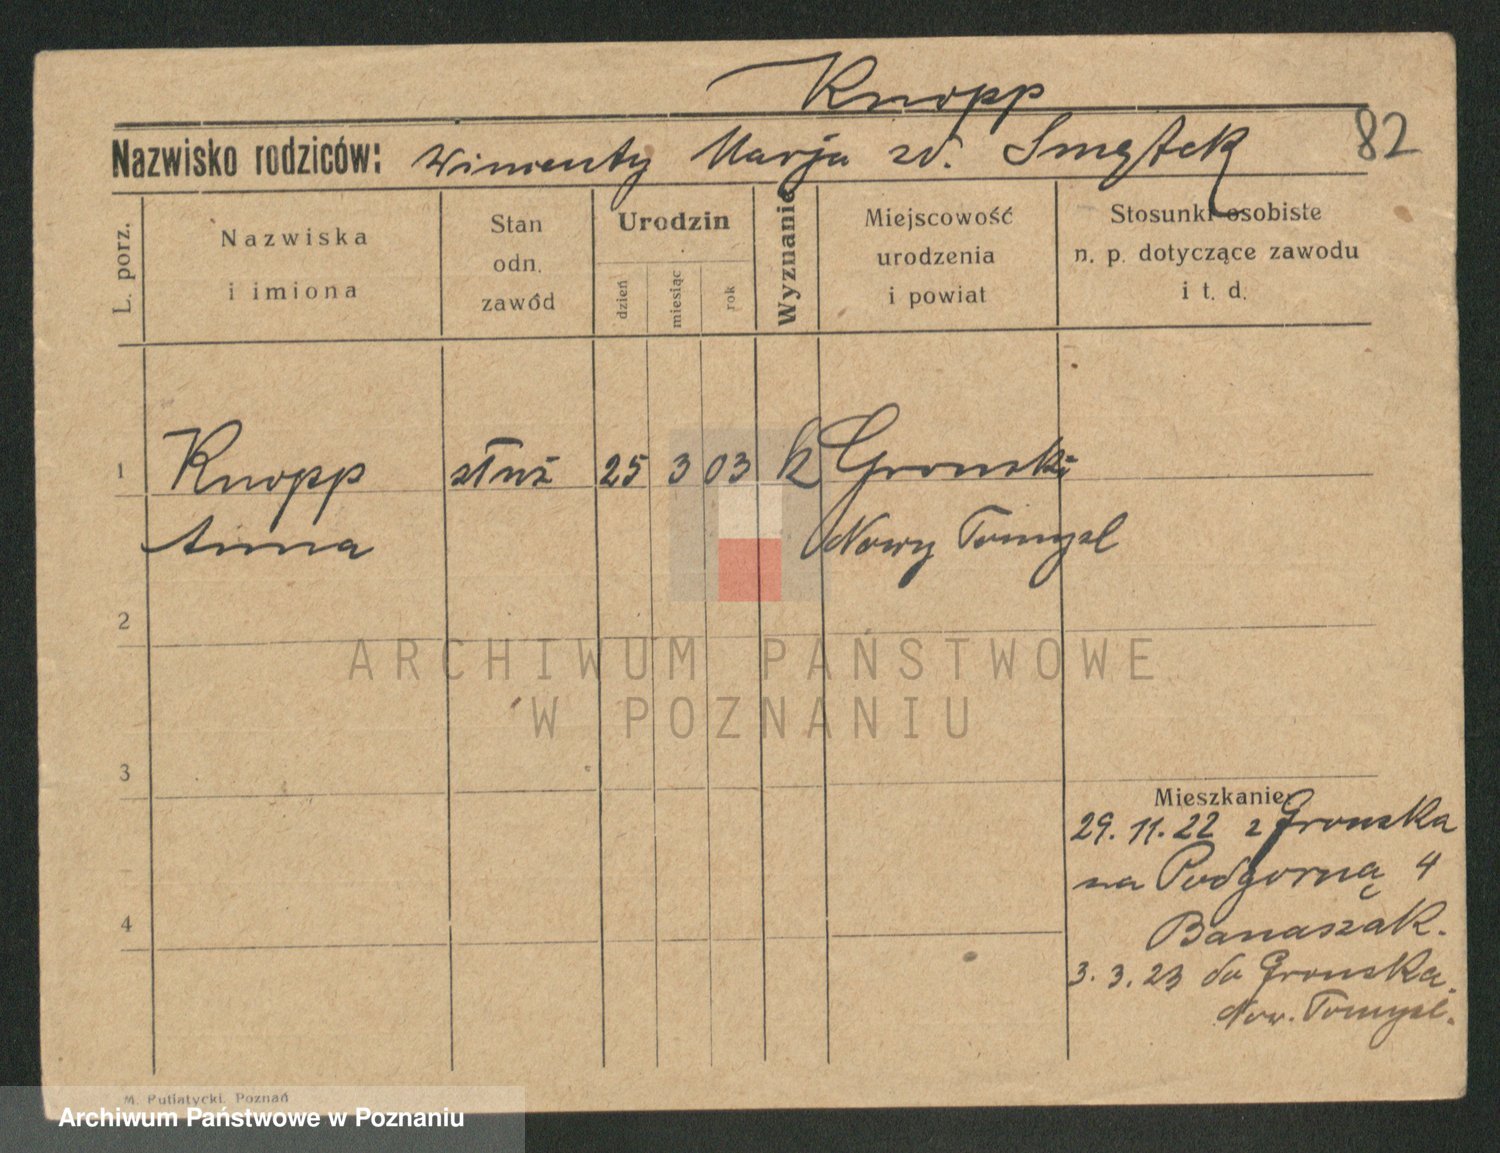 Knopp
82
Nazwisko rodziców: Wincenty Marja zd. Smętek
L. porz.
Nazwiska
i imiona
Stan
odn.
zawód
Urodzin
dzień
miesiąc
rok
Wyznanie
Miejscowość
urodzenia
i powiat
Stosunki osobiste
n. p. dotyczące zawodu
i t. d.
1 Knopp służ 25 3 03 k Gronsko
Anna Nowy Tomysl
2
ARCHIWUM PAŃSTWOWE
W POZNANIU
3
Mieszkanie
29. 11. 22 z Gronska
na Podgorną 4
4
Banaszak.
3. 3. 23 do Gronska.
Now. Tomysl.
M. Putiatycki. Poznań
Archiwum Państwowe w Poznaniu